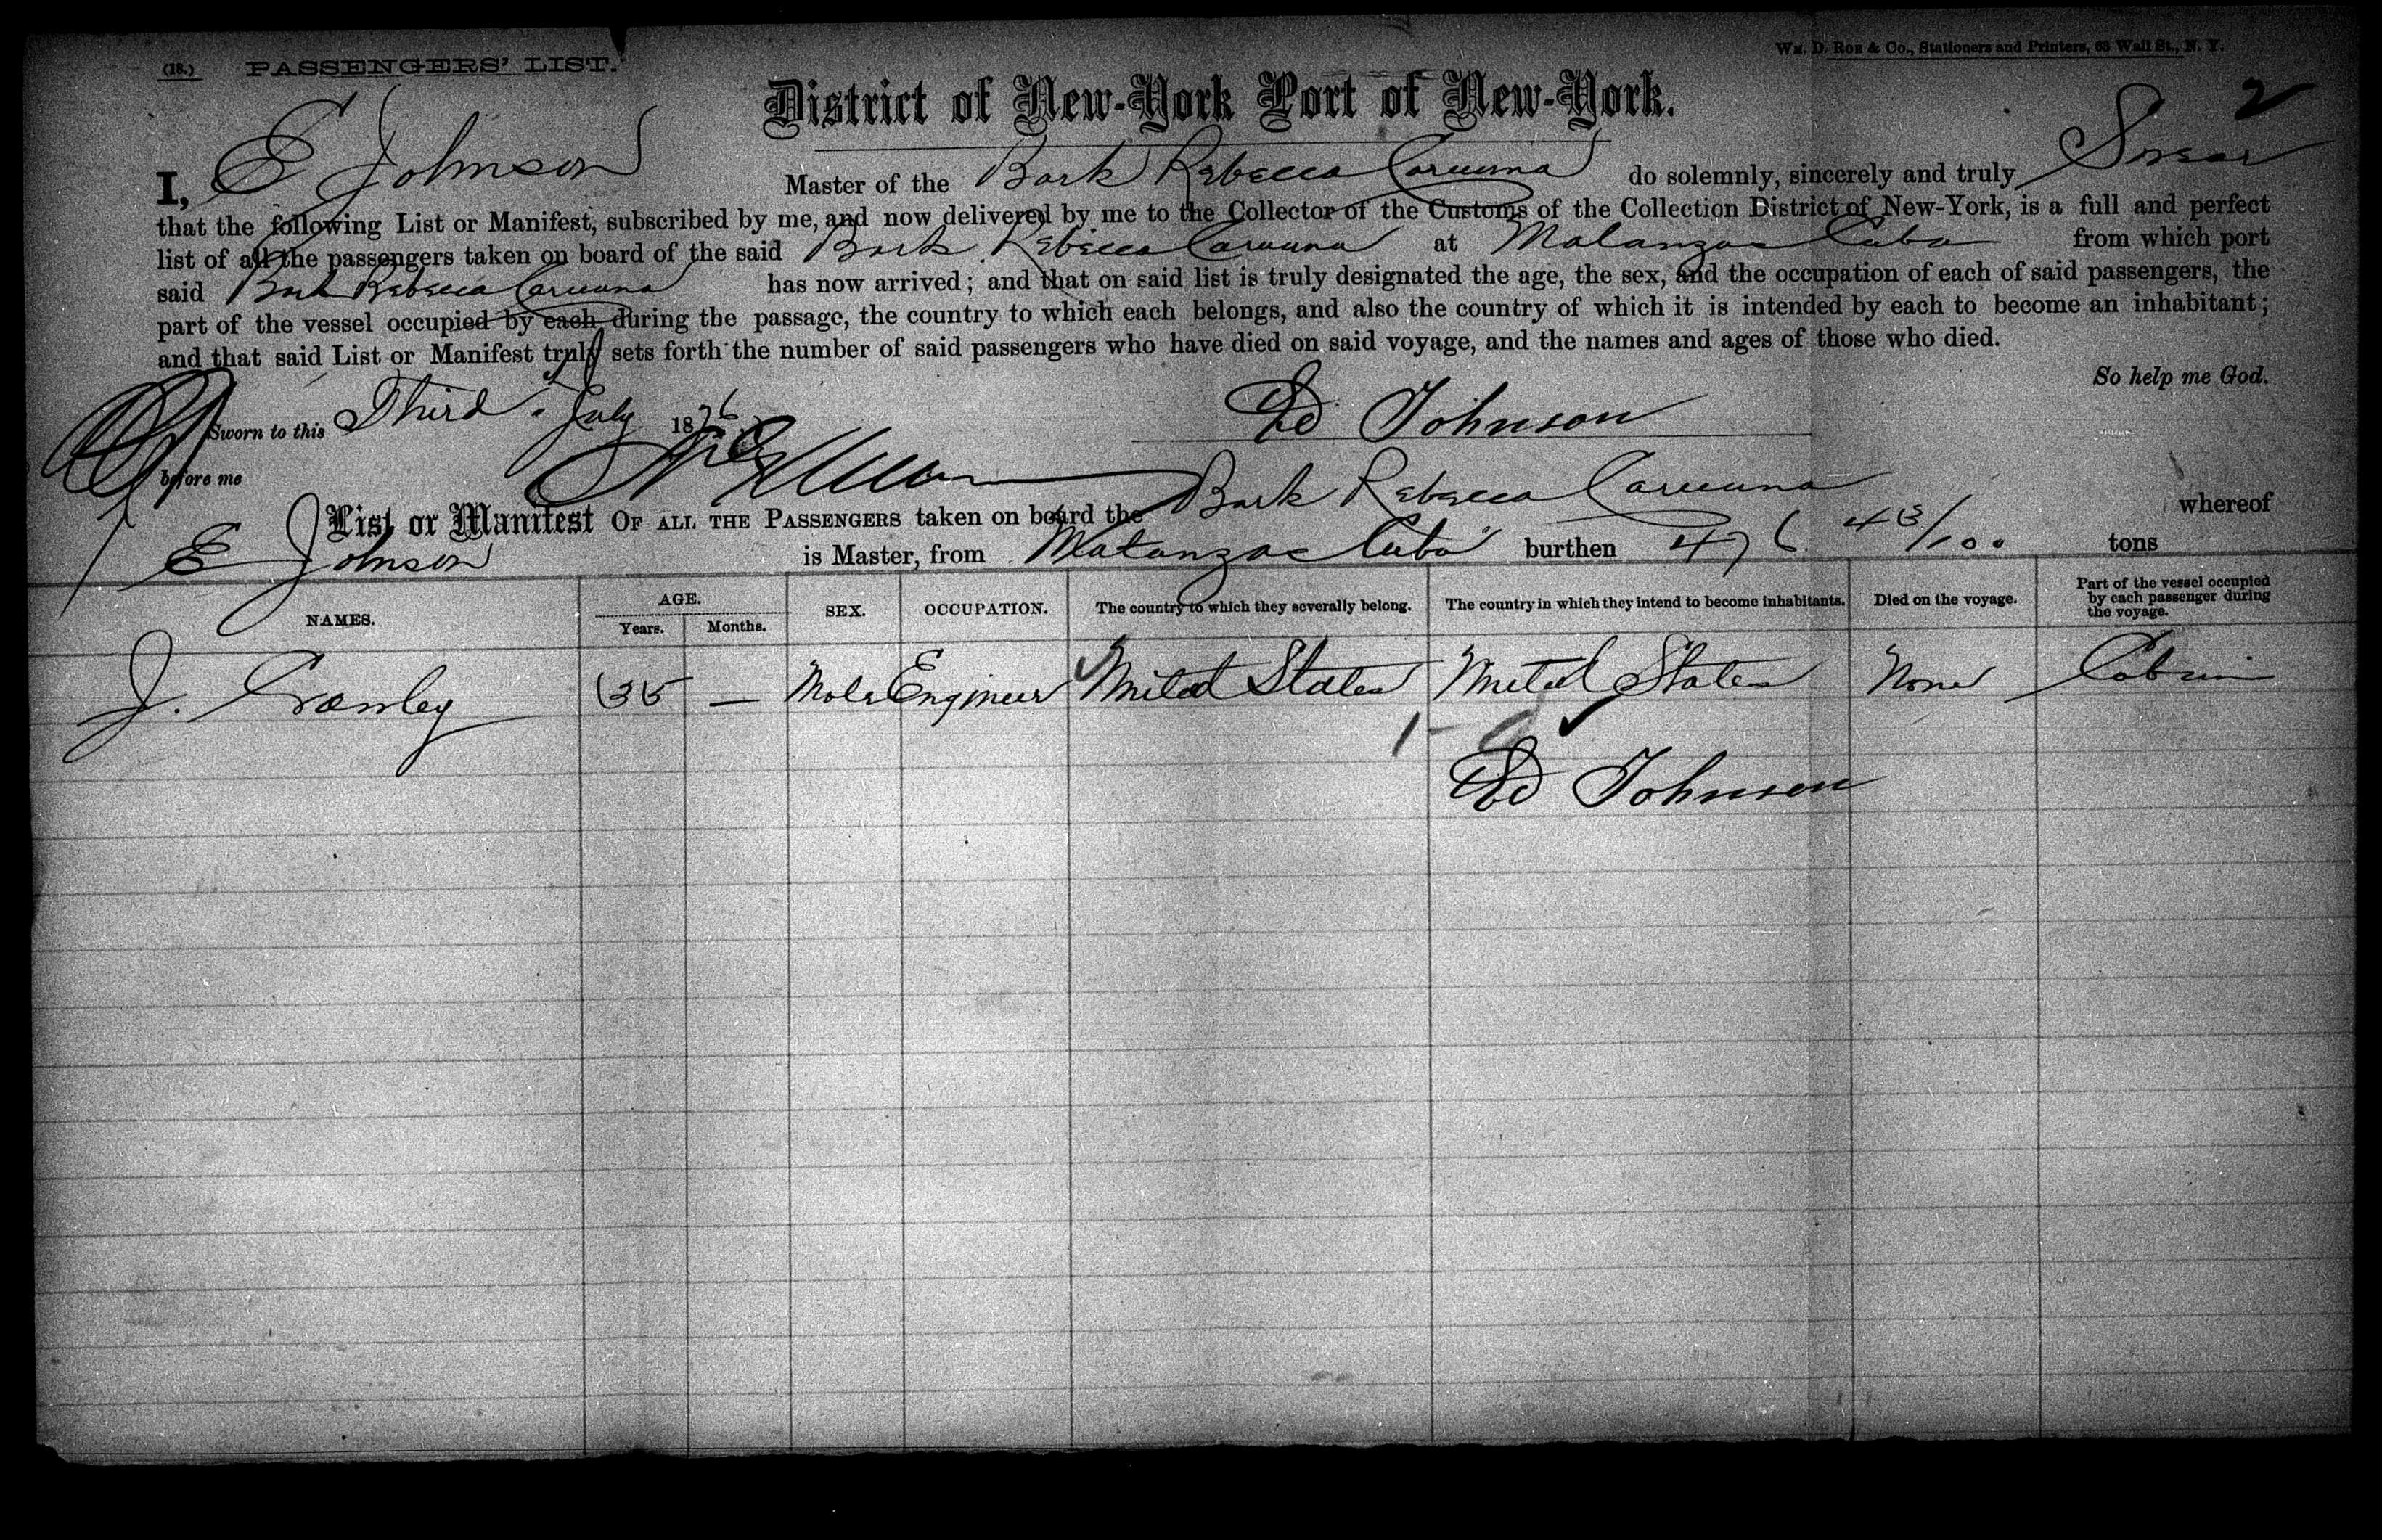 (18.) PASSENGERS' LIST.
Wm. D. Roe & Co., Stationers and Printers, 63 Wall St., N. Y.
2
District of New-York Port of New-York.
I, E Johnson Master of the Bark Rebecca Caruana do solemnly, sincerely and truly Swear
that the following List or Manifest, subscribed by me, and now delivered by me to the Collector of the Customs of the Collection District of New-York, is a full and perfect
list of all the passengers taken on board of the said Bark Rebecca Caruana at Matanzas Cuba from which port
said Bark Rebecca Caruana has now arrived; and that on said list is truly designated the age, the sex, and the occupation of each of said passengers, the
part of the vessel occupied by each during the passage, the country to which each belongs, and also the country of which it is intended by each to become an inhabitant;
and that said List or Manifest truly sets forth the number of said passengers who have died on said voyage, and the names and ages of those who died.
So help me God.
Sworn to this Third July 1876 Ed Johnson
before me
List or Manifest OF ALL THE PASSENGERS taken on board the Bark Rebecca Caruana whereof
E Johnson is Master, from Matanzas Cuba burthen 476 43/100 tons
NAMES. AGE. Years. Months. SEX. OCCUPATION. The country to which they severally belong. The country in which they intend to become inhabitants. Died on the voyage. Part of the vessel occupied by each passenger during the voyage.
J. Cramley 35 — Male Engineer United States United States None Cabin
Ed Johnson